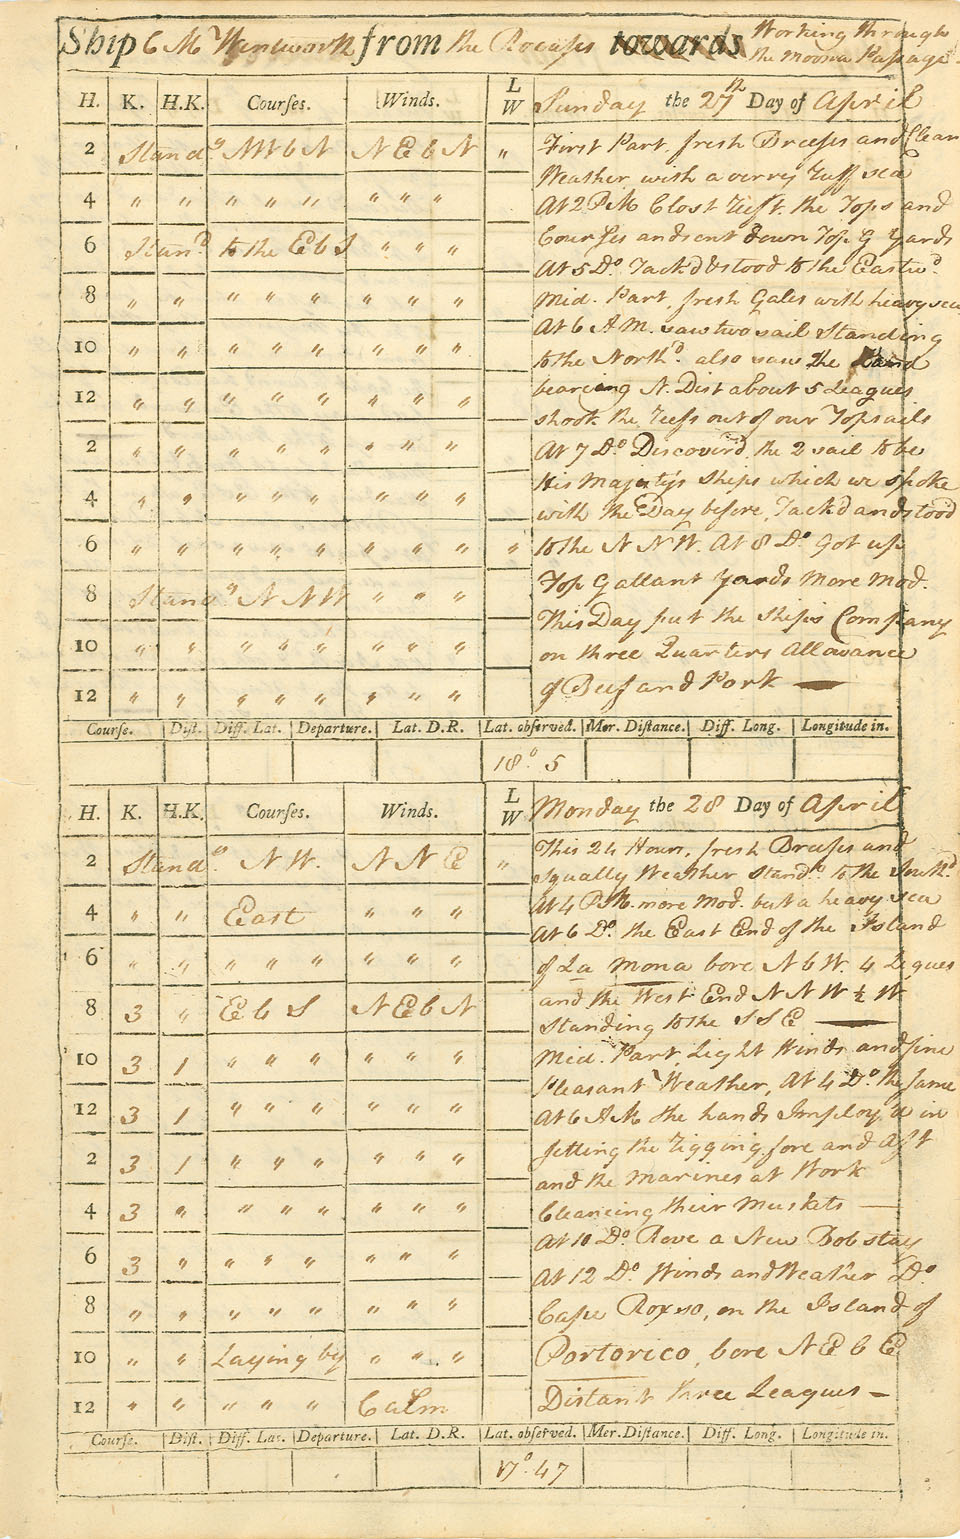 Ship C M Wentworth from the Rocasses towards Working through
the Moona Passage
H. K. H.K. Courses. Winds. L W Sunday the 27th Day of April
2 Stand.g NW b N N E b N " First Part, fresh Breeses and Clear
Weather with a verry Ruff sea
4 " " " " " " " " At 2 PM Clost Reeft the Tops and
6 Stand to the E b S " " " Courses and sent down Top G Yards
At 5 Do. Tack'd & stood to the Eastwd.
8 " " " " " " " " Mid. Part, fresh Gales with heavy sea
At 6 AM. saw two sail Standing
10 " " " " " " " " to the Northd. also saw the Land
bearing N. Dist about 5 Leagues
12 " " " " " " " " shook the Reefs out of our Topsails
2 " " " " " " " " At 7 Do Discover'd the 2 sail to be
His Majestys Ships which we spoke
4 " " " " " " " " with the Day before, Tack'd and stood
6 " " " " " " " " " to the N N W. At 8 Do Got up
8 Stand.g N N W " " " Top Gallant Yards More Mod.
This Day put the ship's Company
10 " " " " " " " " on three Quarters Allowance
12 " " " " " " " " of Beef and Pork
Course. Dist. Diff. Lat. Departure. Lat. D.R. Lat. observed. Mer. Distance. Diff. Long. Longitude in.
18° 5
H. K. H.K. Courses. Winds. L W Monday the 28 Day of April
2 Stand.g N W. N N E " This 24 Hours, fresh Breeses and
Squally Weather Stand.g to the Southd.
4 " " East " " " At 4 PM. more Mod. but a heavy sea
At 6 Do. the East End of the Island
6 " " " " " " " " of La Mona bore N b W. 4 Legues
8 3 " E b S N E b N and the West End N N W ½ W
Standing to the S S E
10 3 1 " " " " " " Mid. Part, Light Winds and fine
Pleasant Weather, At 4 Do the same
12 3 1 " " " " " " At 6 AM the hands Imploy'd in
2 3 1 " " " " " " setting the Rigging fore and Aft
and the Marines at Work
4 3 " " " " " " " Cleaneing their Muskets —
At 10 Do. Rove a New Bobstay
6 3 " " " " " " " At 12 Do. Winds and Weather Do
8 " " " " " " " " Cape Roxso, on the Island of
10 " " Laying by " " " Portorico, bore N E b E
12 " " " " " Calm Distant three Leagues —
Course. Dist. Diff. Lat. Departure. Lat. D.R. Lat. observed. Mer. Distance. Diff. Long. Longitude in.
17° 47